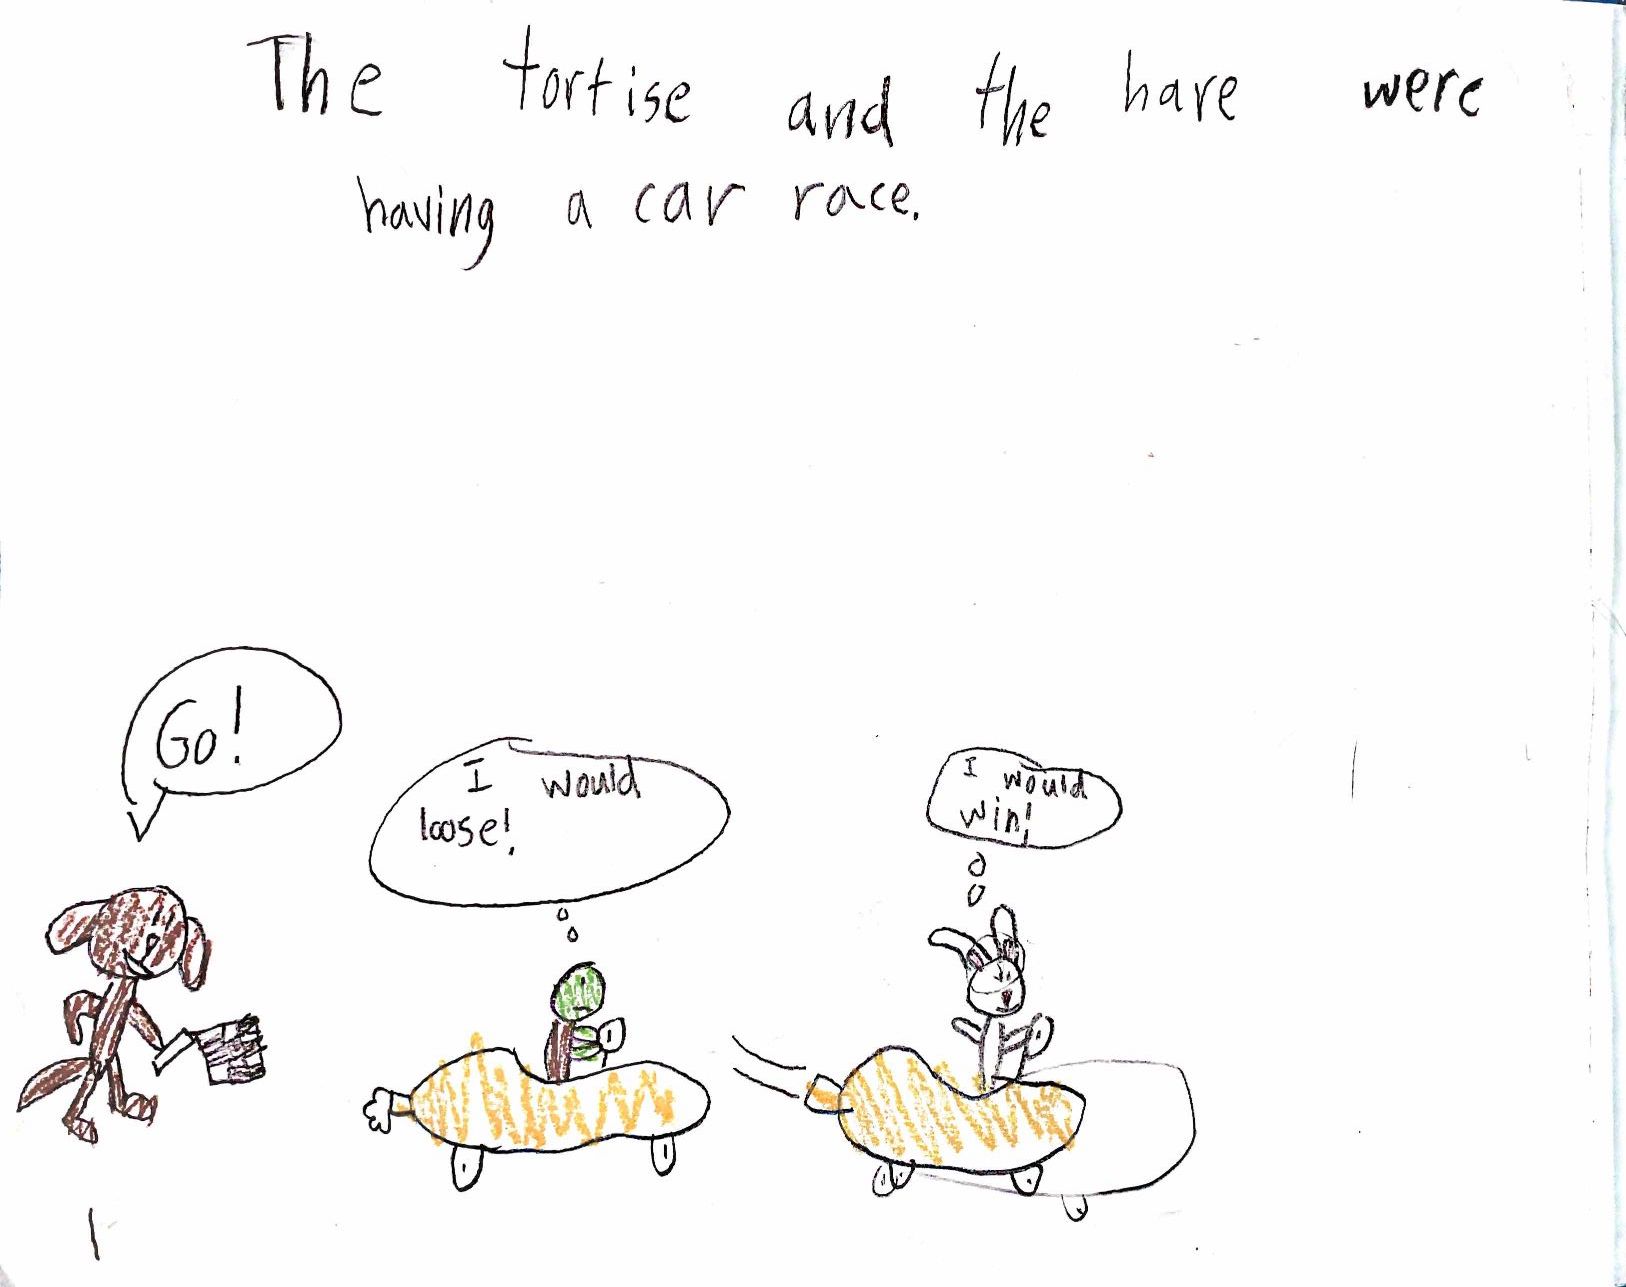 The tortise and the hare were
having a car race.
Go!
I would
loose!
I would
win!
1